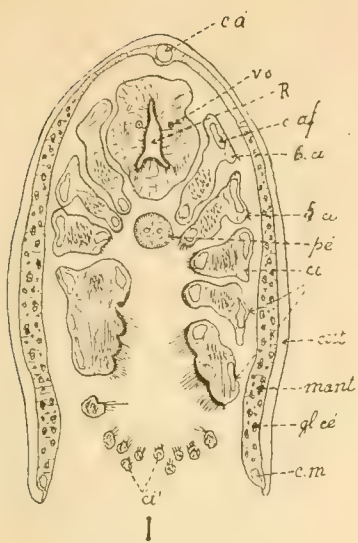 ca
vo
R
c af
b.a
f.a
pé
a
cut
mant
gl cé
c.m
ci'
I